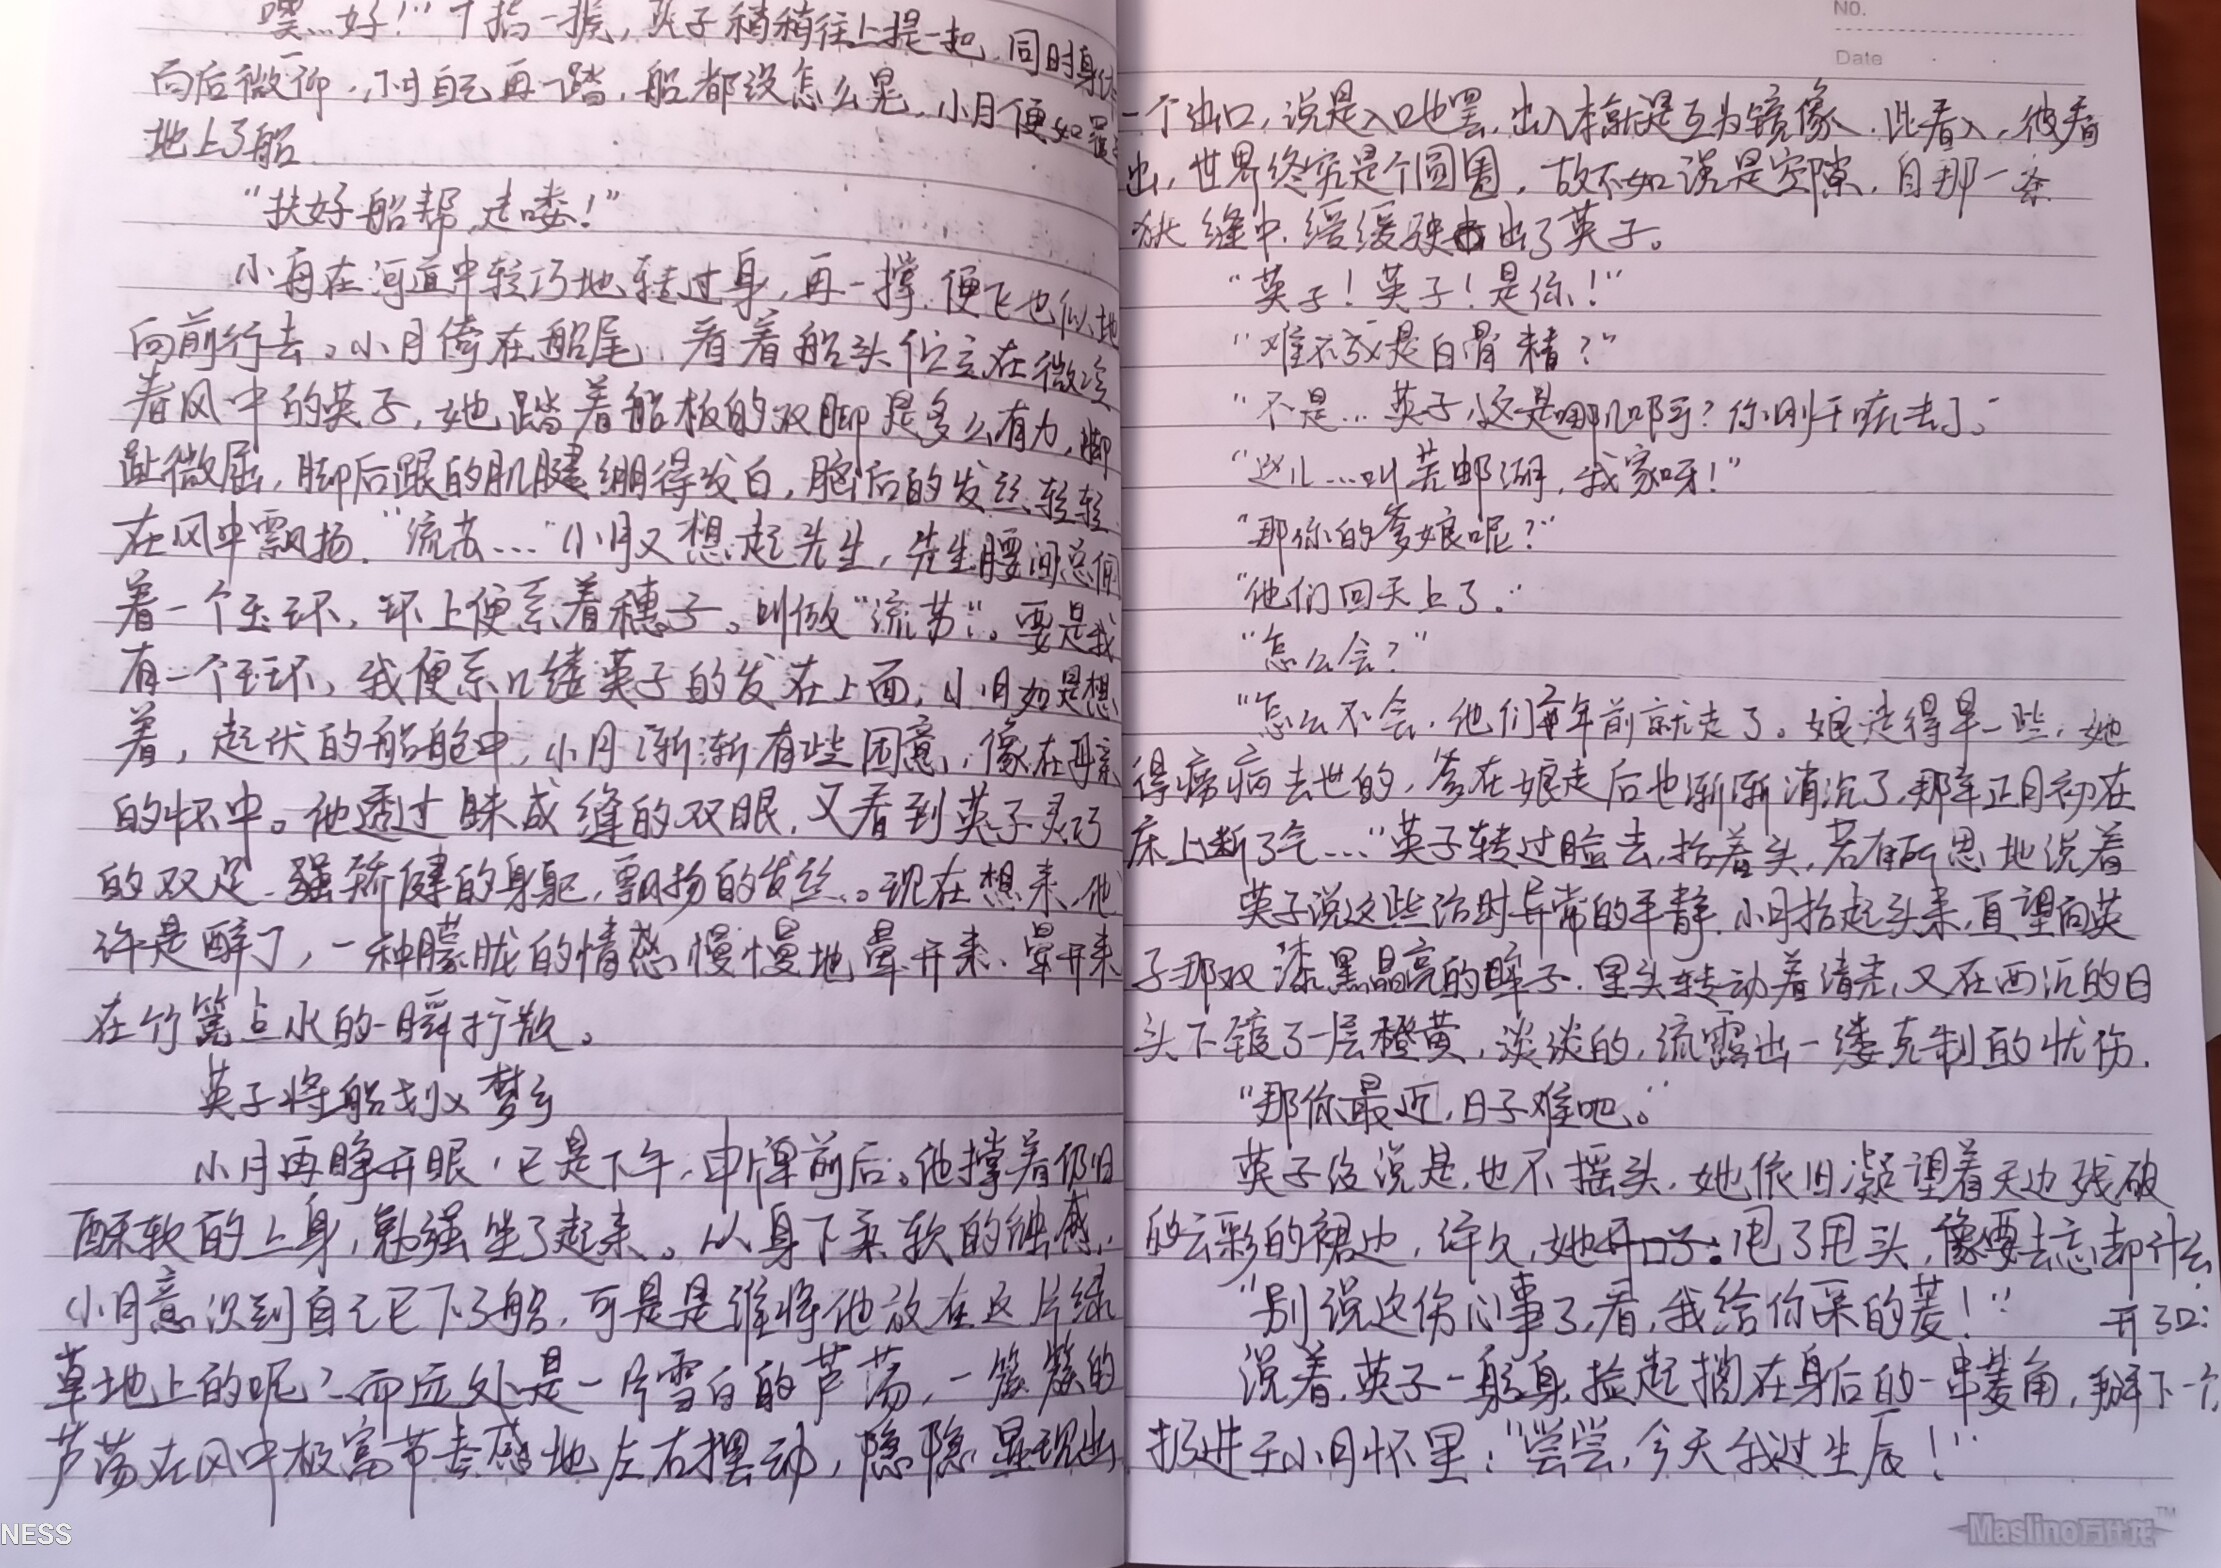 嘿…好！"十指一握，英子稍稍往上提一起，同时身体
向后微仰，小月自己再一踏，船都没怎么晃，小月便如
地上了船
"扶好船帮，走喽！"
小舟在河道中轻巧地转过身，再一撑，便飞也似地
向前行去。小月倚在船尾，看着船头伫立在微凉
春风中的英子，她踏着船板的双脚是多么有力，脚
趾微屈，脚后跟的肌腱绷得发白，脑后的发丝轻轻
在风中飘扬，"流苏…"小月又想起先生，先生腰间总佩
着一个玉环，环上便系着穗子。叫做"流苏"。要是我
有一个玉环，我便系几缕英子的发在上面，小月如是想
着，起伏的船舱中，小月渐渐有些困意，像在母亲
的怀中。他透过眯成缝的双眼，又看到英子灵巧
的双足，矫健的身躯，飘扬的发丝。现在想来，他
许是醉了，一种朦胧的情感慢慢地晕开来、晕开来
在竹篙点水的一瞬扩散。
英子将船划入梦乡
小月再睁开眼，已是下午，申牌前后。他撑着仍旧
酥软的上身，勉强坐了起来。从身下柔软的触感，
小月意识到自己已下了船，可是是谁将他放在这片绿
草地上的呢？而远处是一片雪白的芦荡，一簇簇的
芦荡在风中极富节奏感地左右摆动，隐隐显现出
NO.
Date
一个出口，说是入口也罢，出入本就是互为镜像，此看入，彼看
出，世界终究是个圆圈，故不如说是空隙，自那一条
狭缝中，缓缓驶出了英子。
"英子！英子！是你！"
"难不成是白骨精？"
"不是…英子，这是哪儿啊？你刚干嘛去了。"
"这儿…叫芜邮湖，我家呀！"
"那你的爹娘呢？"
"他们回天上了。"
"怎么会？"
"怎么不会，他们年前就走了。娘走得早一些，她
得痨病去世的，爹在娘走后也渐渐消沉了，那年正月初在
床上断了气…"英子转过脸去，抬着头，若有所思地说着
英子说这些话时异常的平静，小月抬起头来，直望向英
子那双漆黑晶亮的眸子，里头转动着清光，又在西沉的日
头下镀了一层橙黄，淡淡的，流露出一缕克制的忧伤.
"那你最近，日子难吧。"
英子没说是，也不摇头，她依旧凝望着天边残破
的云彩的裙边，许久，她甩了甩头，像要去忘却什么，
开了口：
"别说这伤心事了，看，我给你采的菱！"
说着，英子一躬身，捡起搁在身后的一串菱角，掰下一个，
扔进于小月怀里："尝尝，今天我过生辰！"
Maslino万仕龙™
NESS